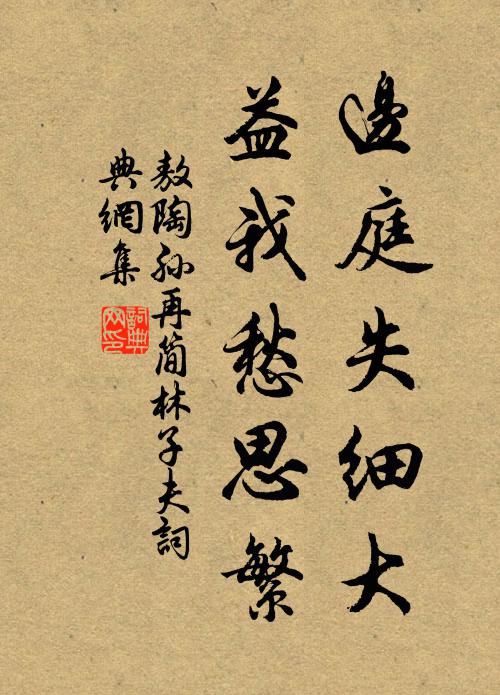 邊庭失細大
益我愁思繁
敖陶孫再簡林子夫詞
典網集
詞典
网印